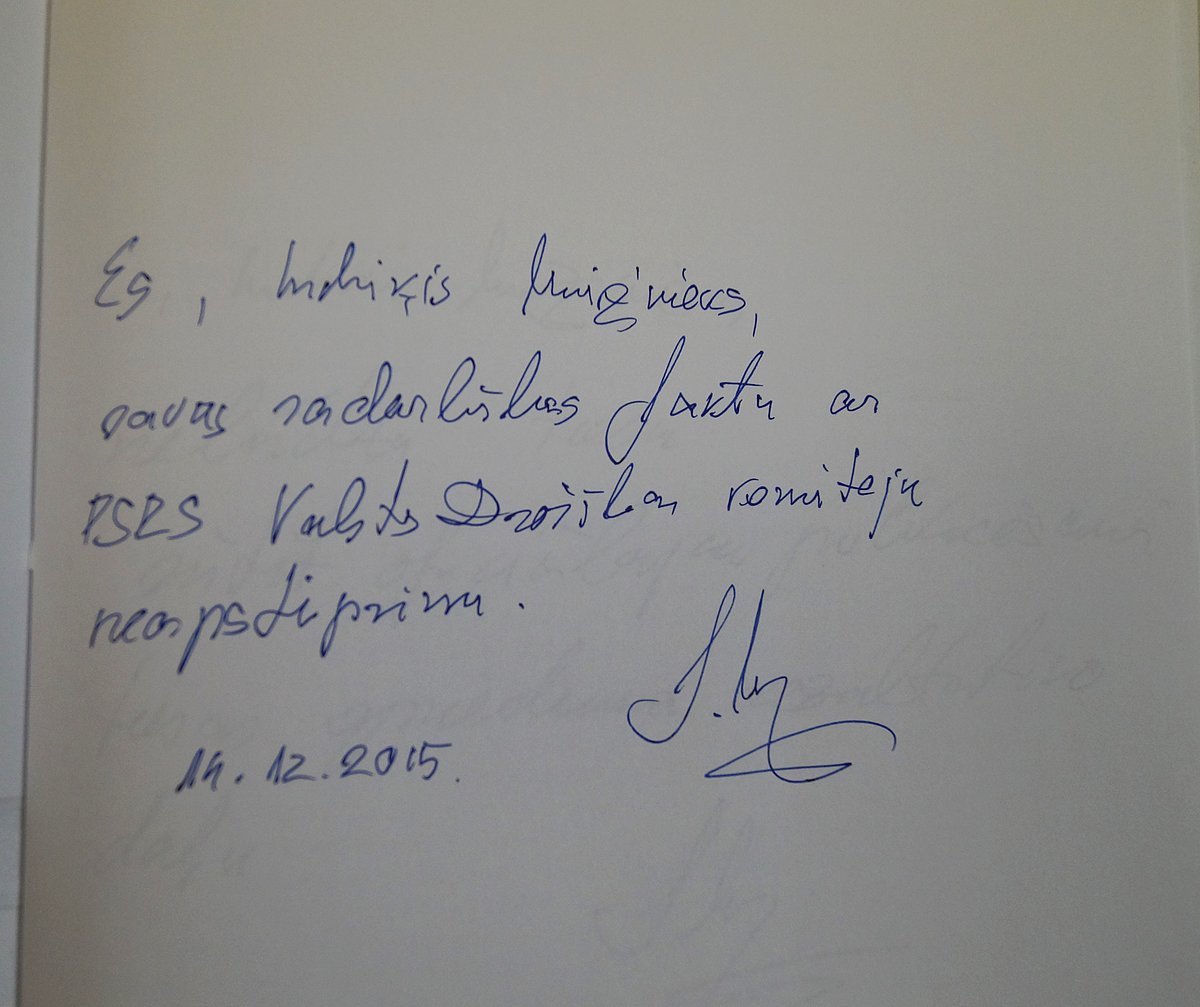 Es, Indriķis Muižnieks,
savas sadarbības faktu ar
PSRS Valsts Drošības komiteju
neapstiprinu.
14.12.2015.